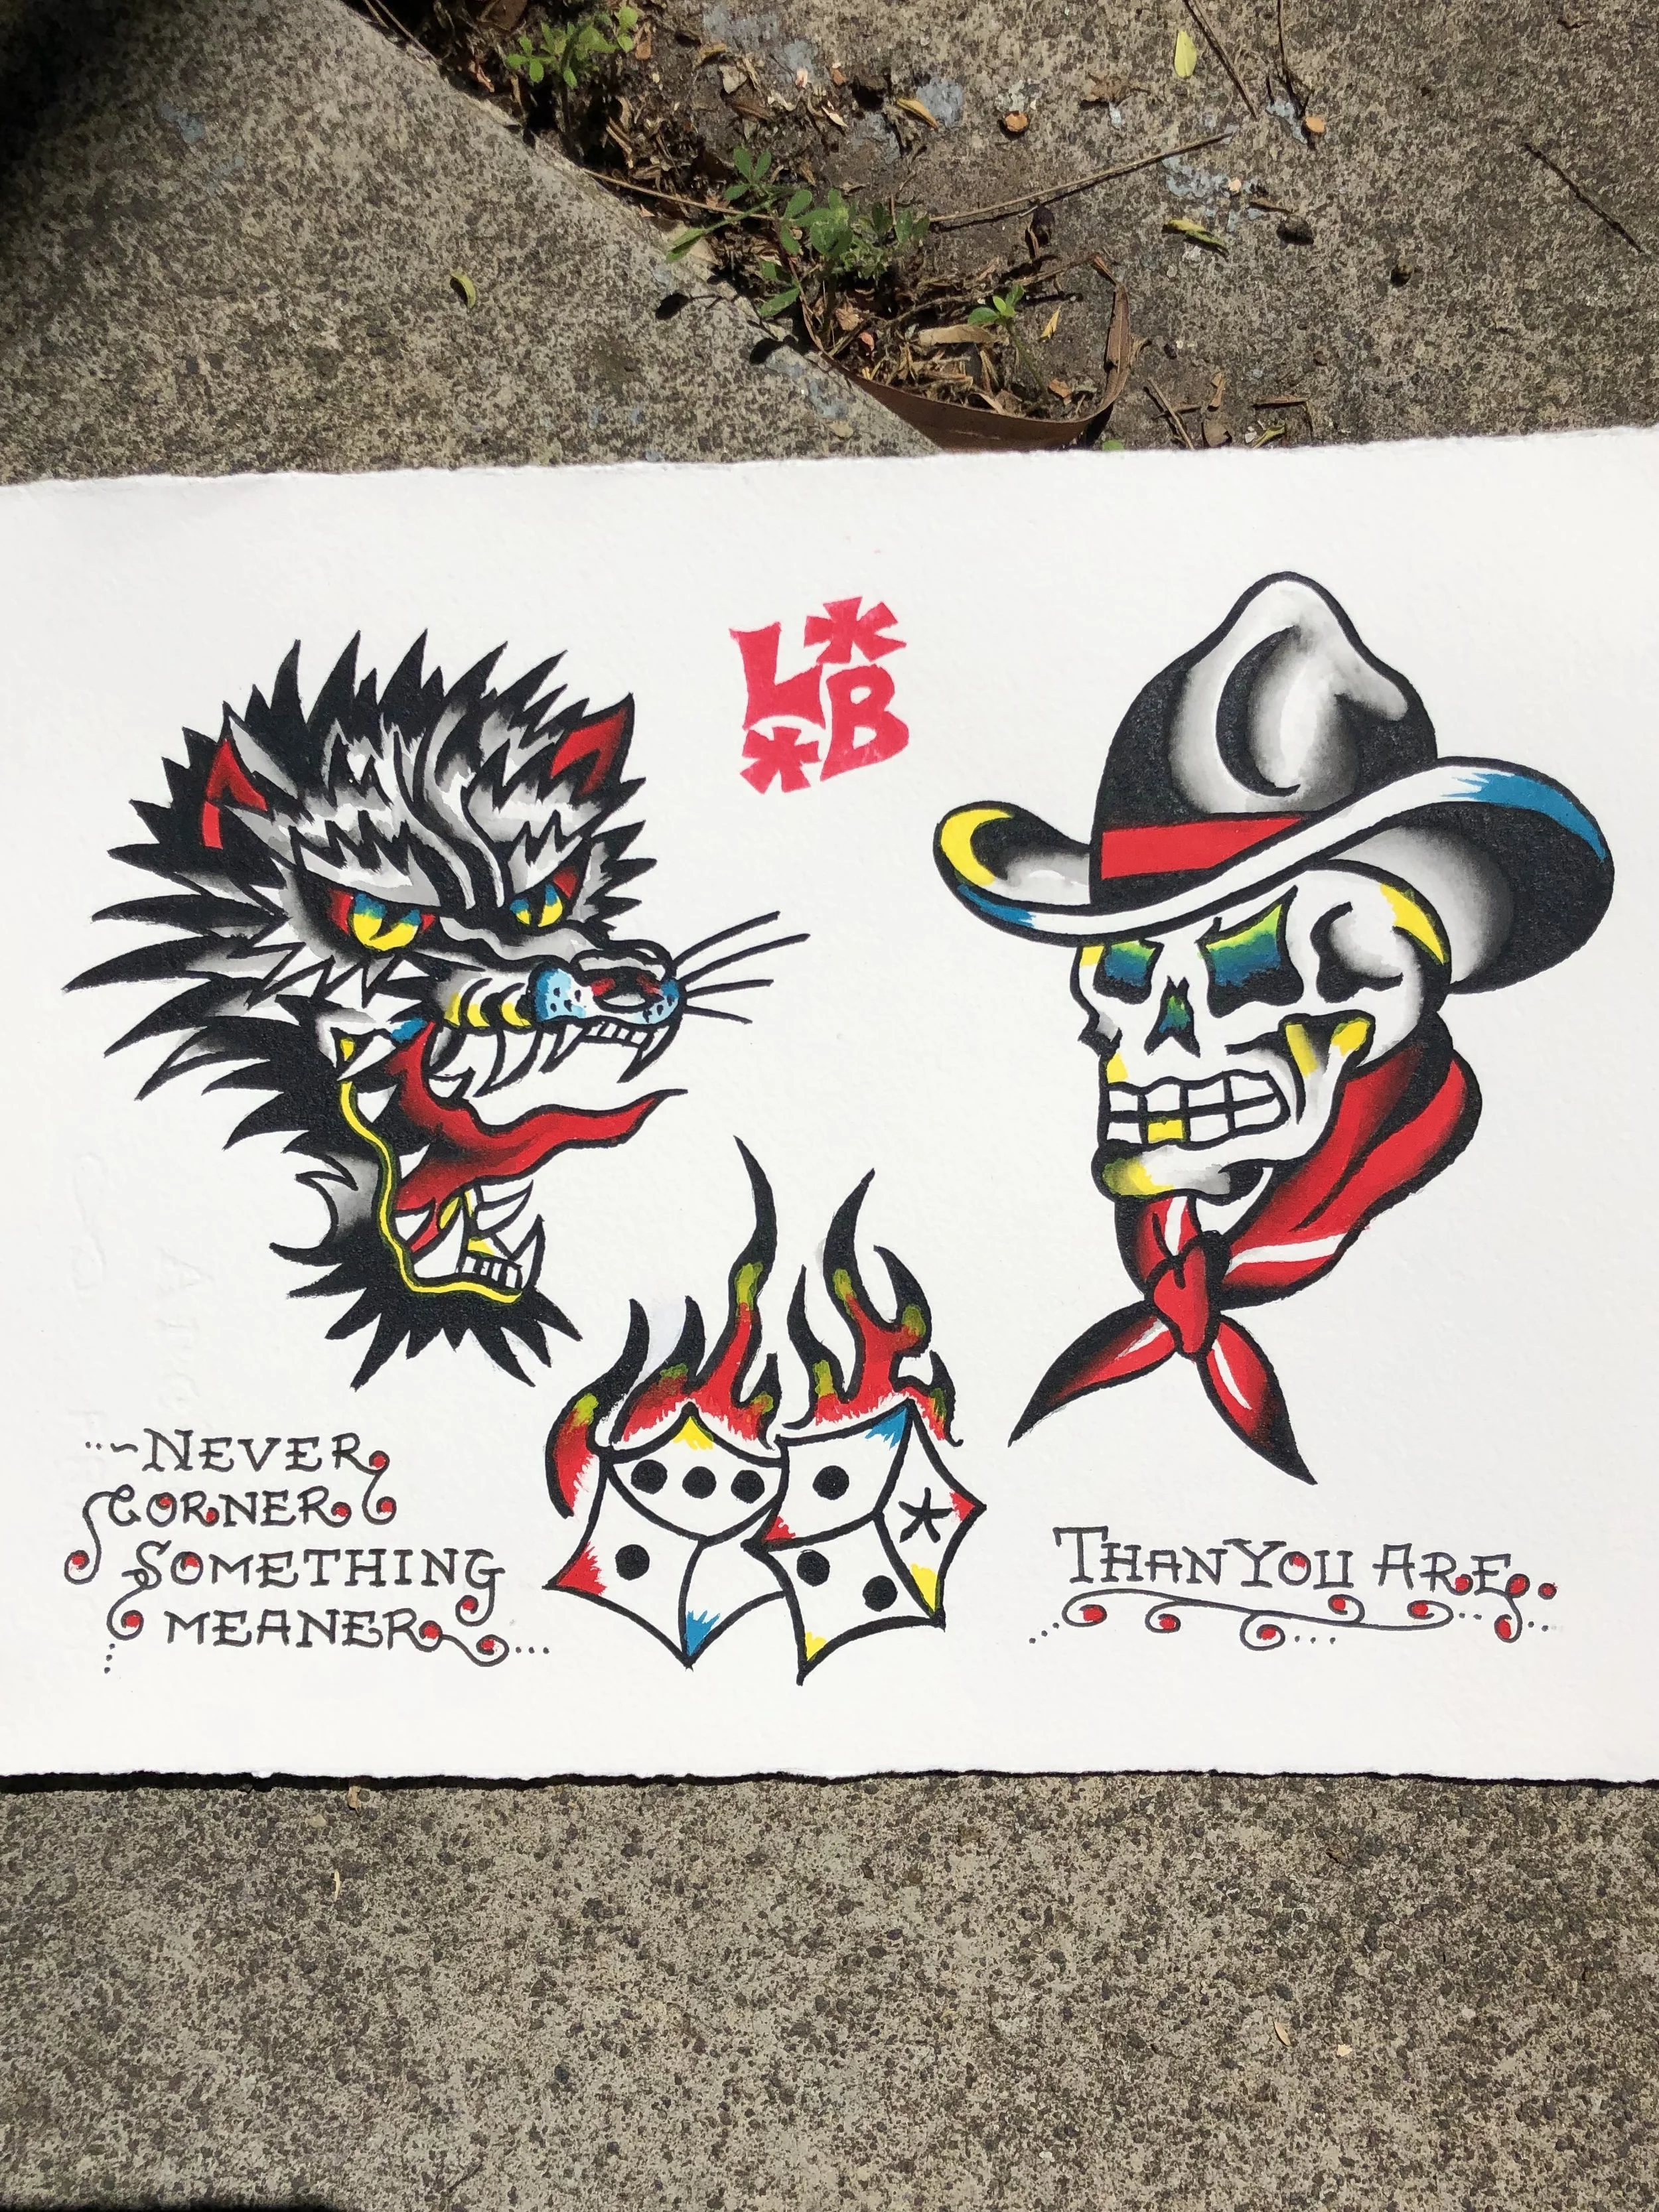 L*
*B
~NEVER
CORNER
SOMETHING
MEANER...
THAN YOU ARE..